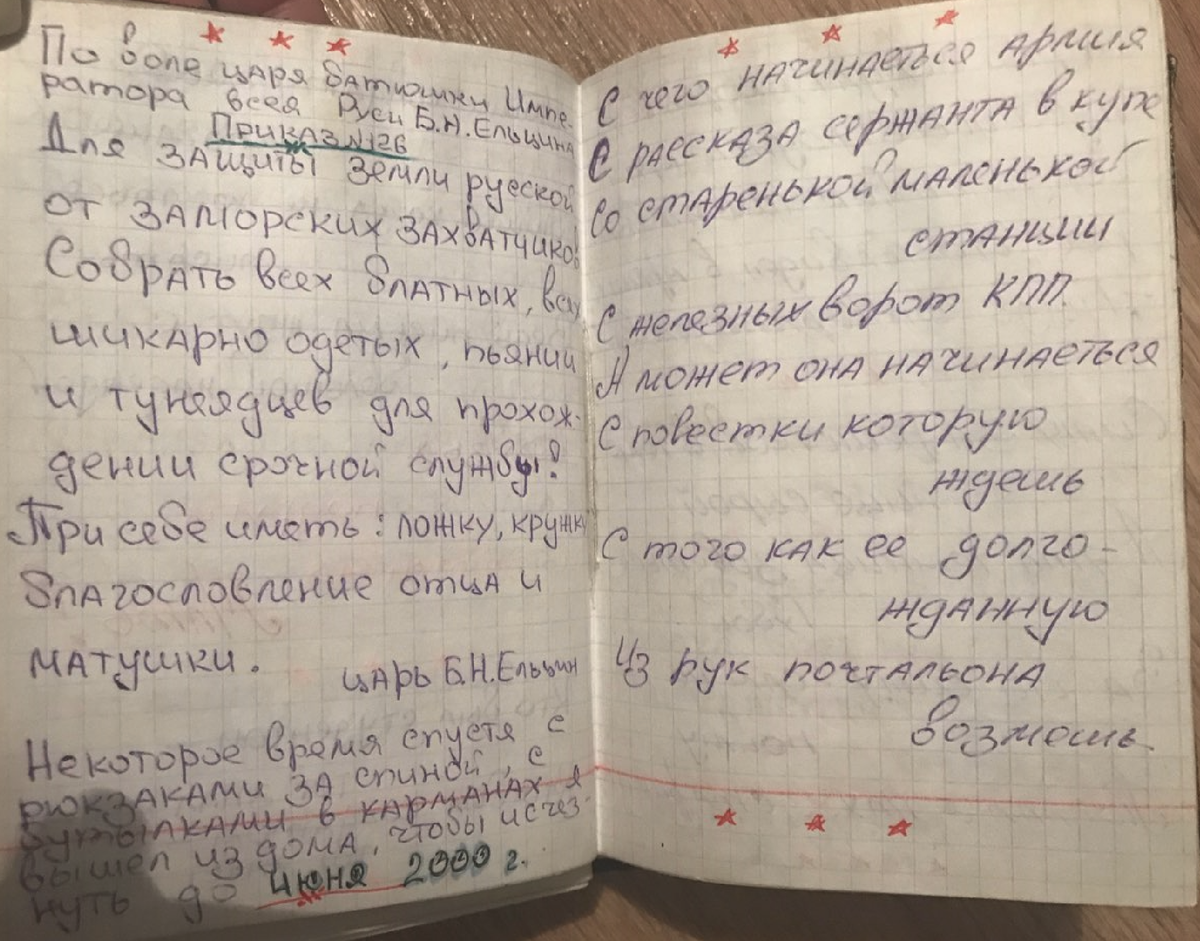 По воле царя батюшки Импе-
ратора всея Руси Б.Н.Ельцина
Приказ №126
Для защиты земли русской
от заморских захватчиков
Собрать всех блатных, всех
шикарно одетых, пьяниц
и тунеядцев для прохож-
дении срочной службы!
При себе иметь: ложку, кружку
благословление отца и
матушки.
царь Б.Н.Ельцин
Некоторое время спустя с
рюкзаками за спиной, с
бутылками в карманах я
вышел из дома, чтобы исчез-
нуть до июня 2000 г.
С чего начинаеться армия
С рассказа сержанта в купе
Со старенькой маленькой
станции
С железных ворот КПП.
А может она начинаеться
С повестки которую
ждешь
С того как ее долго-
жданную
Из рук почтальона
возмешь.